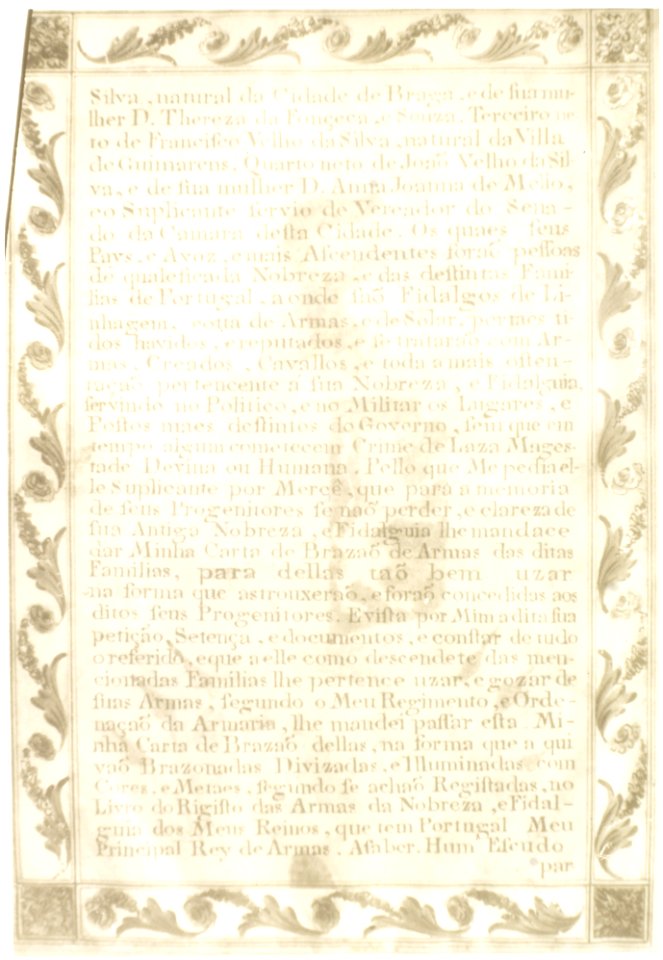 Silva, natural da Cidade de Braga, e de sua mu-
lher D. Thereza da Fonçeca, e Souza. Terceiro ne
to de Francisco Velho da Silva, natural da Villa
de Guimarens, Quarto neto de Joaõ Velho da Sil-
va, e de sua mulher D. Anna Joanna de Mello,
e o Suplicante servio de Vereador do Sena-
do da Camara desta Cidade. Os quaes seus
Pays, e Avoz, e mais Ascendentes foraõ pessoas
de qualeficada Nobreza, e das destintas Fami-
lias de Portugal, a onde saõ Fidalgos de Li-
nhagem, cota de Armas, e de Solar, por taes ti-
dos havidos, e reputados, e se trataraõ com Ar-
mas, Creados, Cavallos, e toda a mais osten-
taçaõ pertencente á sua Nobreza, e Fidalguia,
servindo no Politico, e no Militar os Lugares, e
Postos maes destintos do Governo, sem que em
tempo algum cometecem Crime de Laza Mages-
tade Devina ou Humana. Pello que Me pedia el-
le Suplicante por Mercê, que para a memoria
de seus Progenitores se naõ perder, e clareza de
sua Antiga Nobreza, e Fidalguia lhe mandace
dar Minha Carta de Brazaõ de Armas das ditas
Familias, para dellas taõ bem uzar
na forma que as trouxeraõ, e foraõ concedidas aos
ditos seus Progenitores. E vista por Mim a dita sua
petição, Setença, e documentos, e constar de tudo
o referido, e que a elle como descendete das men-
cionadas Familias lhe pertence uzar, e gozar de
suas Armas, segundo o Meu Regimento, e Orde-
naçaõ da Armaria, lhe mandei passar esta Mi-
nha Carta de Brazaõ dellas, na forma que a qui
vaõ Brazonadas Divizadas, e Illuminadas com
Cores, e Metaes, segundo se achaõ Registadas, no
Livro do Rigisto das Armas da Nobreza, e Fidal-
guia dos Meus Reinos, que tem Portugal Meu
Principal Rey de Armas. A saber. Hum Escudo
par